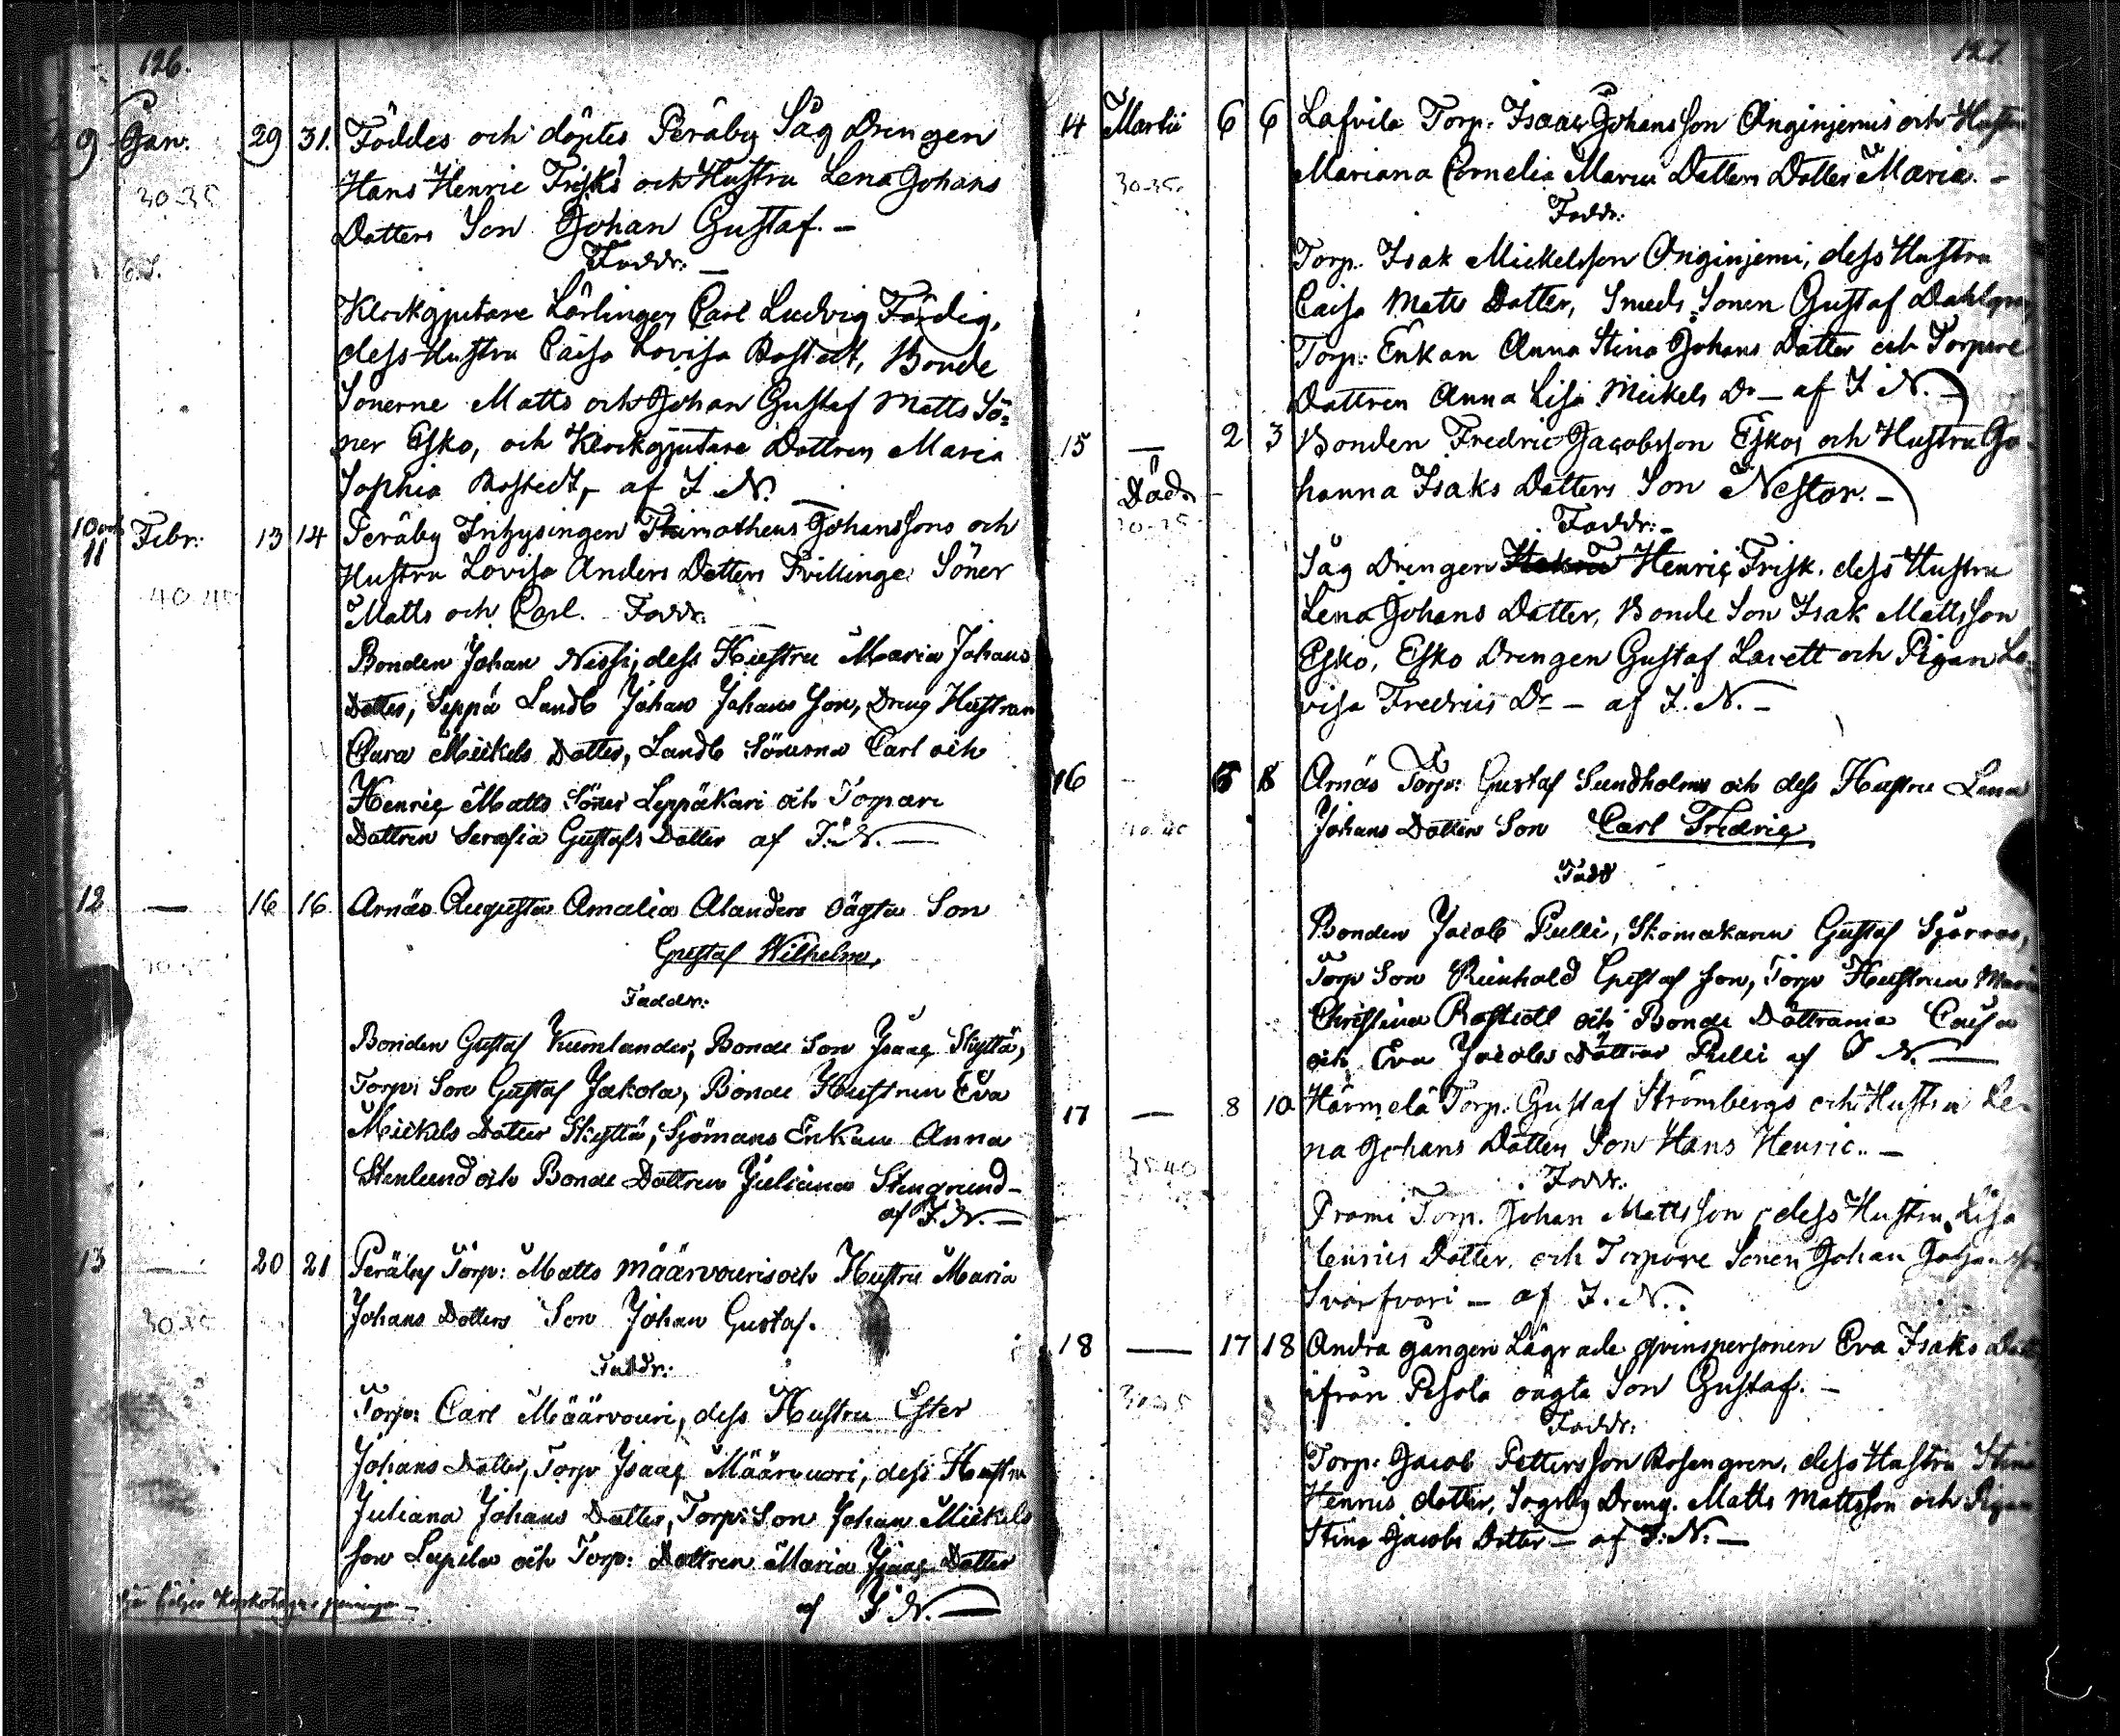 126.
9 Jan: 29 31. Föddes och döptes Peräby Såg Drengen
30-35 Hans Henric Frisks och Hustru Lena Johans
Datters Son Johan Gustaf. —
Faddr: —
Klockgjutare Lärlingen Carl Ludvig Färdig,
dess Hustru Caisa Lovisa Rostedt, Bonde
Sönerne Matts och Johan Gustaf Matts Sö-
ner Esko, och Klockgjutare Dottren Maria
Sophia Rostedt, — af I. N. —
10 och 11 Febr: 13 14 Peräby Inhysingen Thimotheus Johanssons och
40-45 Hustru Lovisa Anders Datters Tvillinge Söner
Matts och Carl. Faddr:
Bonden Johan Nissi, dess Hustru Maria Johans
Dotter, Seppä Landb Johan Johans Son, Dreng Hustrun
Clara Mickels Dotter, Landb Sönerna Carl och
Henric Matts Söner Leppäkari och Torpare
Dottren Serafia Gustafs Dotter af I. N. —
12 — 16 16 Arnäs Augusta Amalia Alanders oägta Son
Gustaf Wilhelm,
Faddr:
Bonden Gustaf Kumlander, Bonde Son Isaac Skyttä,
Torp: Son Gustaf Jakola, Bonde Hustrun Eva
Mickels Dotter Skyttä, Sjömans Enkan Anna
Stenlund och Bonde Dottren Juliana Stengrund —
af I. N. —
13 — 20 21 Peräby Torp: Matts Määrvouris och Hustru Maria
30-35 Johans Dotters Son Johan Gustaf.
Faddr:
Torp: Carl Määrvouri, dess Hustru Ester
Johans Dotter, Torp Isaac Määrvuori, dess Hustru
Juliana Johans Dotter, Torp: Son Johan Mickels
son Lupila och Torp: Dottren Maria Isaac Dotter
af I. N. —
127.
14 Martii 6 6 Lafvila Torp. Isaac Johansson Onginjemis och Hustru
30-35. Mariana Cornelia Maria Datters Dotter Maria. —
Faddr:
Torp. Isak Mickelsson Onginjemi, dess Hustru
Caisa Matts Dotter, Smeds Sonen Gustaf Dahlgren,
Torp: Enkan Anna Stina Johans Dotter och Torpare
Dottren Anna Lisa Mickels Dr — af I. N. —
15 — 2 3 Bonden Fredric Jacobsson Eskos och Hustru Jo-
Död. hanna Isaks Datters Son Nestor. —
Faddr: —
Såg Drengen Henric Frisk, dess Hustru
Lena Johans Datter, Bonde Son Isak Mattsson
Esko, Esko Drengen Gustaf Lavett och Pigan Lo-
visa Fredrics Dr — af I. N. —
16 — 8 Arnäs Torp: Gustaf Sundholms och dess Hustru Lena
Johans Dotters Son Carl Fredric
Fadd
Bonden Jacob Pulli, Skomakaren Gustaf
Torp Son Reinhold Gustaf Son, Torp Hustrun Maria
Christina Rostedt och Bonde Döttrarna Caisa
och Eva Jacobs Döttrar Pulli af I. N. —
17 — 8 10 Härmelä Torp. Gustaf Strömbergs och Hustru Le-
35-40 na Johans Datters Son Hans Henric. —
Faddr:
Prami Torp. Johan Mattsson, dess Hustru Lisa
Henrics Dotter, och Torpare Sonen Johan
Svarfvari — af I. N.
18 — 17 18 Andra gången Lägrade qvinspersonen Eva Isaks Datt
30-35 ifrån Pesola oägta Son Gustaf. —
Faddr:
Torp. Jacob Pettersson Rosengren, dess Hustru Stina
Henrics dotter, Sogsby Dreng. Matts Mattsson och Pigan
Stina Jacobs Dotter — af I. N. —